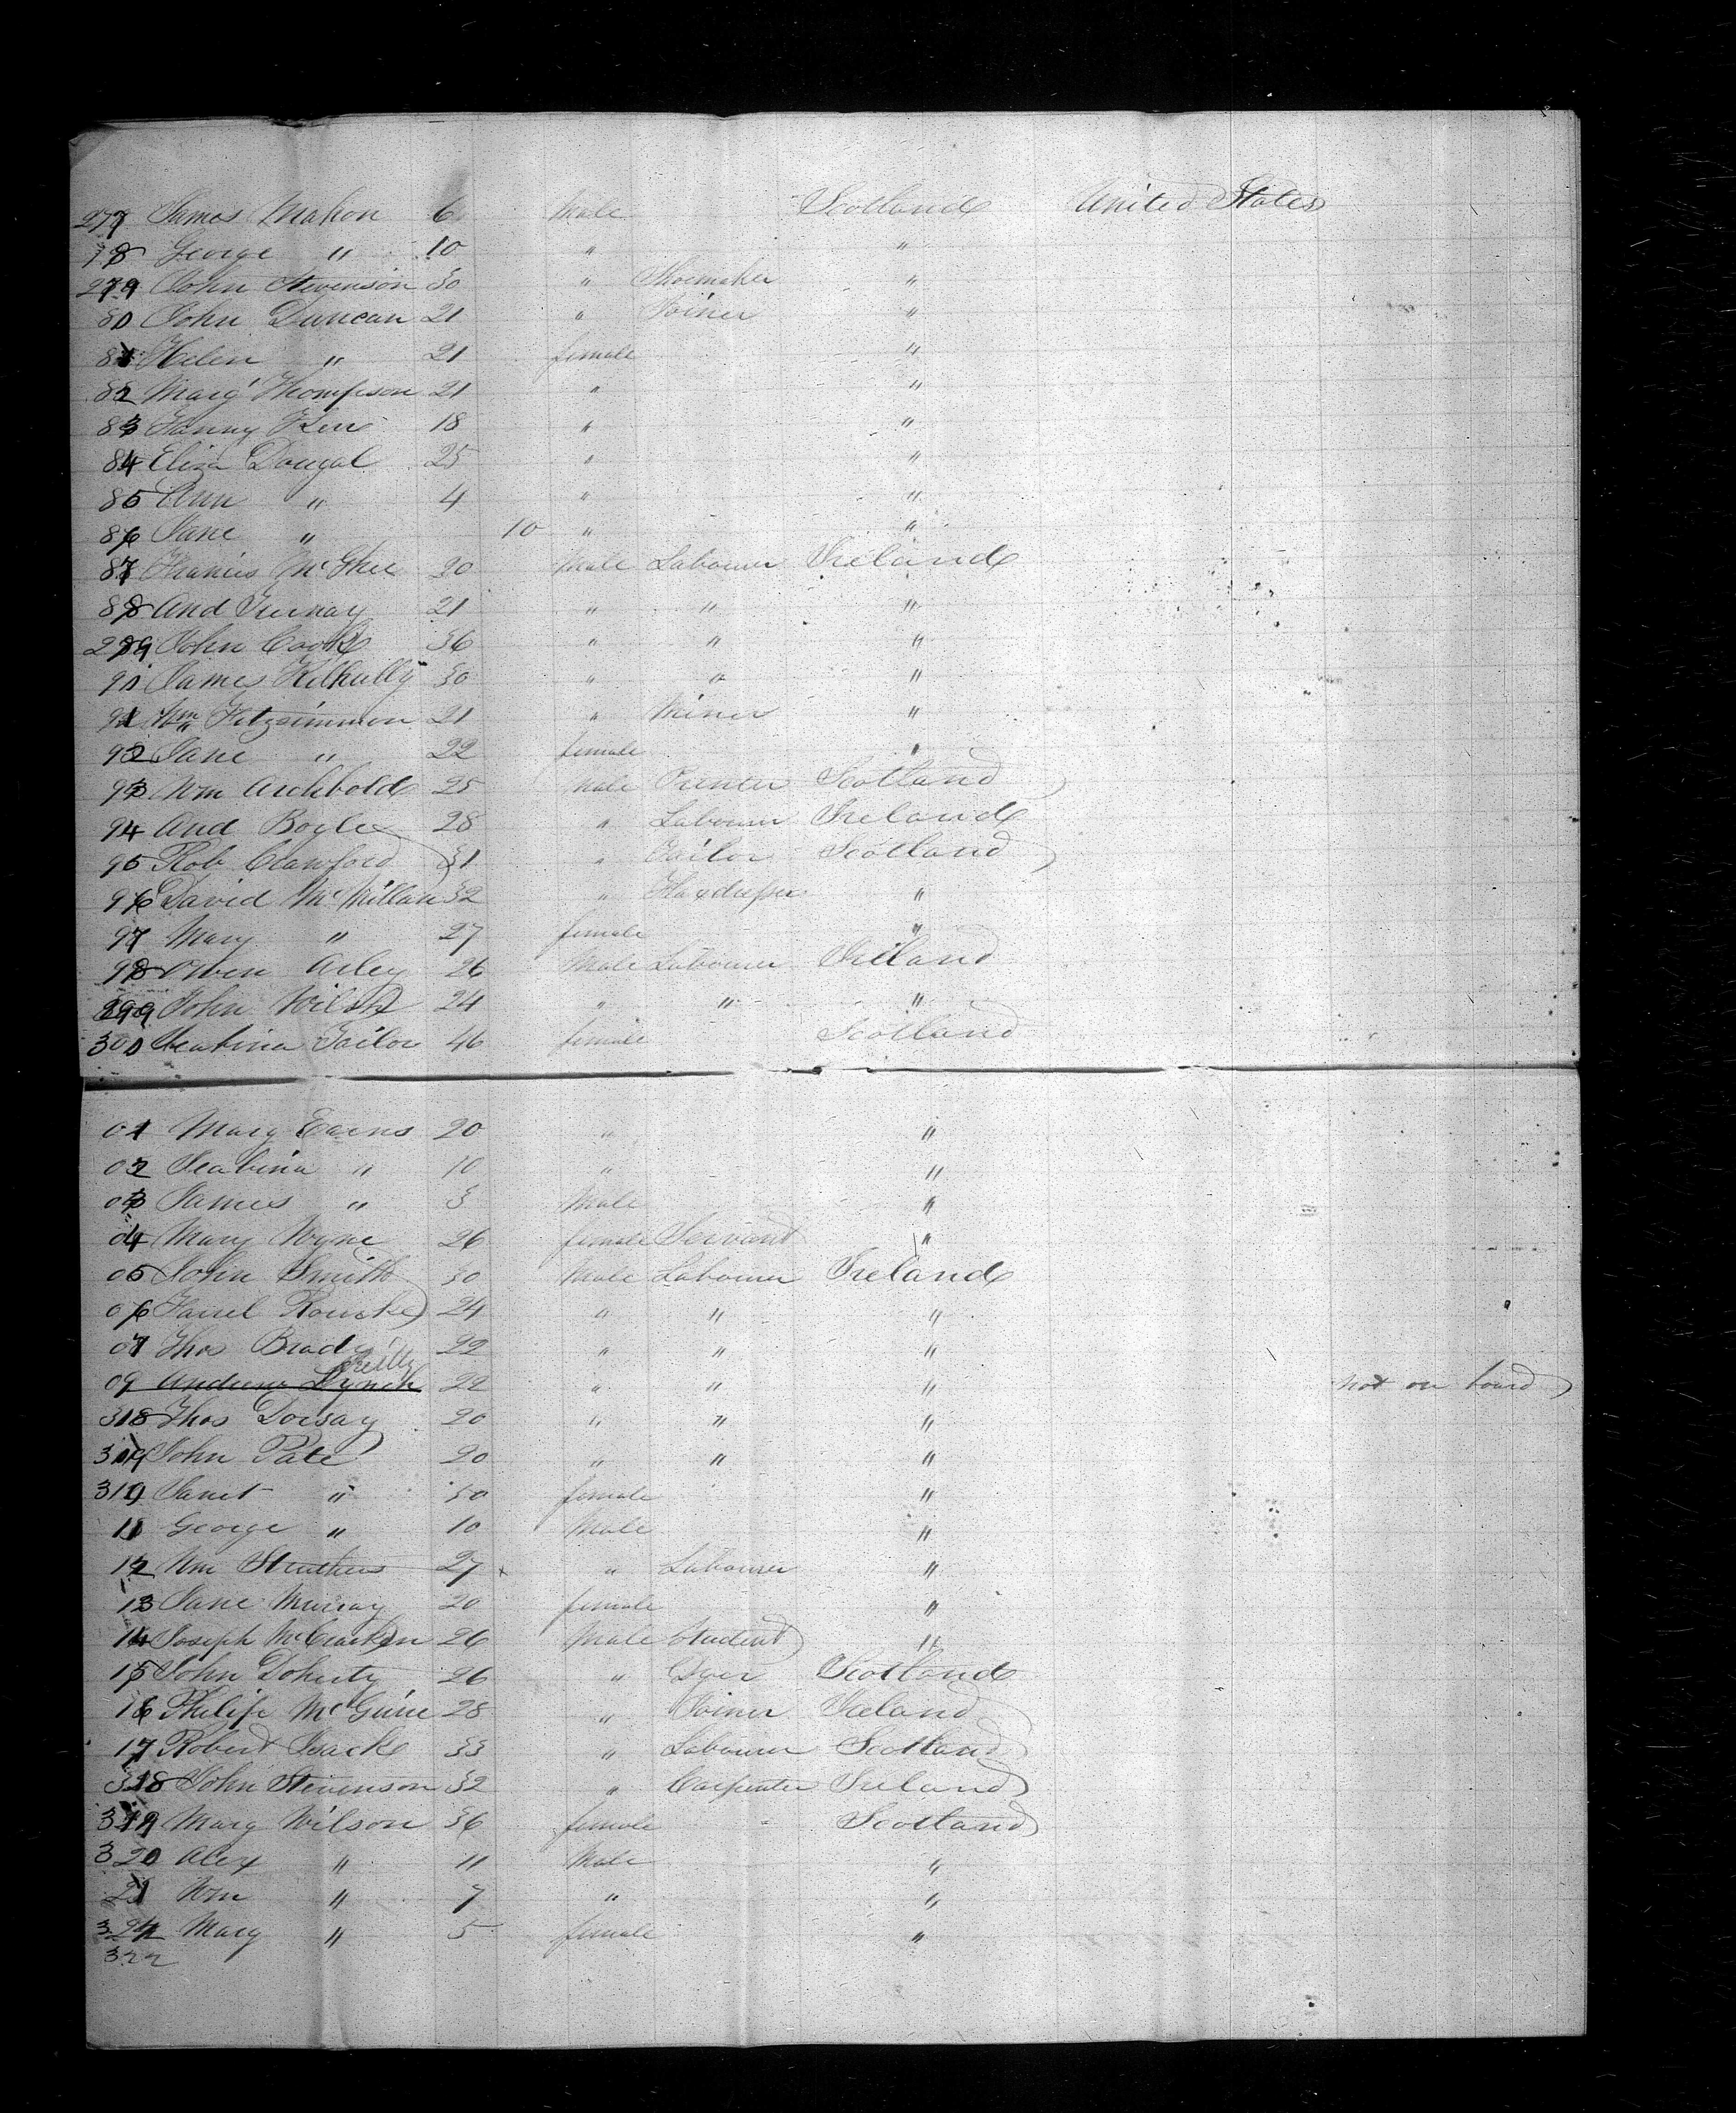 277 James Mahon 6 Male Scotland United States
78 George " 10 " "
279 John Stevenson 30 " Shoemaker "
80 John Duncan 21 " Joiner "
81 Helen " 21 female "
82 Marg Thompson 21 " "
83 Fanny Kerr 18 " "
84 Eliza Dougal 25 " "
85 Ann " 4 " "
86 Jane " 10 " "
87 Francis McGhee 20 Male Labourer Ireland
88 And 21 " " "
289 John Cook 36 " " "
90 James 30 " " "
91 Wm Fitzsimmon 21 " Miner "
92 Jane " 22 female "
93 Wm Archbold 25 Male Scotland
94 And Boyle 28 " Labourer Ireland
95 Rob Crawford 31 " Tailor Scotland
96 David McMillan 32 " Flaxdresser "
97 Mary " 27 female "
98 Owen Arley 26 Male Labourer Ireland
299 John 24 " " "
300 Tailor 46 female Scotland
01 Mary 20 " "
02 " 10 " "
03 James " 3 Male "
04 Mary Wyne 26 female Servant "
05 John Smith 30 Male Labourer Ireland
06 Farrel Rourke 24 " " "
07 Thos Brady 22 " " "
Reilly
09 Andrew Lynch 22 " " " not on board
Thos Dorsay 20 " " "
John Pate 20 " " "
Janet " 50 female "
11 George " 10 Male "
12 Wm Struthers 27 x " Labourer "
13 Jane Murray 20 female "
14 Joseph McCracken 26 Male Student "
15 John Doherty 26 " Dyer Scotland
16 Philip McGuire 28 " Joiner Ireland
17 Robert Isack 33 " Labourer Scotland
318 John Stevenson 32 " Carpenter Ireland
319 Marg Wilson 36 female Scotland
320 Alex " 11 Male "
21 Wm " 7 " "
Mary " 5 female "
322